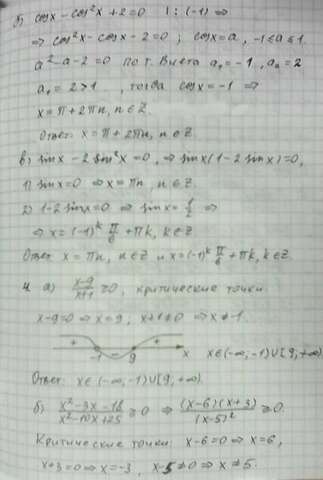 б) cosx - cos²x + 2 = 0 | : (-1) ⇒
⇒ cos²x - cosx - 2 = 0 ; cosx = a, -1 ≤ a ≤ 1.
a² - a - 2 = 0 по т. Виета a₁ = -1, a₂ = 2
a₁ = 2 > 1, тогда cosx = -1 ⇒
x = π + 2πn, n ∈ Z.
Ответ: x = π + 2πn, n ∈ Z.
в) sinx - 2 sin²x = 0, ⇒ sinx(1 - 2 sinx) = 0,
1) sinx = 0 ⇒ x = πn, n ∈ Z.
2) 1 - 2 sinx = 0 ⇒ sinx = 1/2 ⇒
⇒ x = (-1)^k π/6 + πk, k ∈ Z
Ответ: x = πn, n ∈ Z и x = (-1)^k π/6 + πk, k ∈ Z.
4. а) (x-9)/(x+1) ≥ 0, критические точки:
x - 9 = 0 ⇒ x = 9 ; x + 1 ≠ 0 ⇒ x ≠ -1.
+ -1 - 9 + x x ∈ (-∞, -1) ∪ [9, +∞).
Ответ: x ∈ (-∞, -1) ∪ [9, +∞).
б) (x² - 3x - 18)/(x² - 10x + 25) ≥ 0 ⇒ ((x-6)(x+3))/(x-5)² ≥ 0.
Критические точки: x - 6 = 0 ⇒ x = 6,
x + 3 = 0 ⇒ x = -3, x - 5 ≠ 0 ⇒ x ≠ 5.